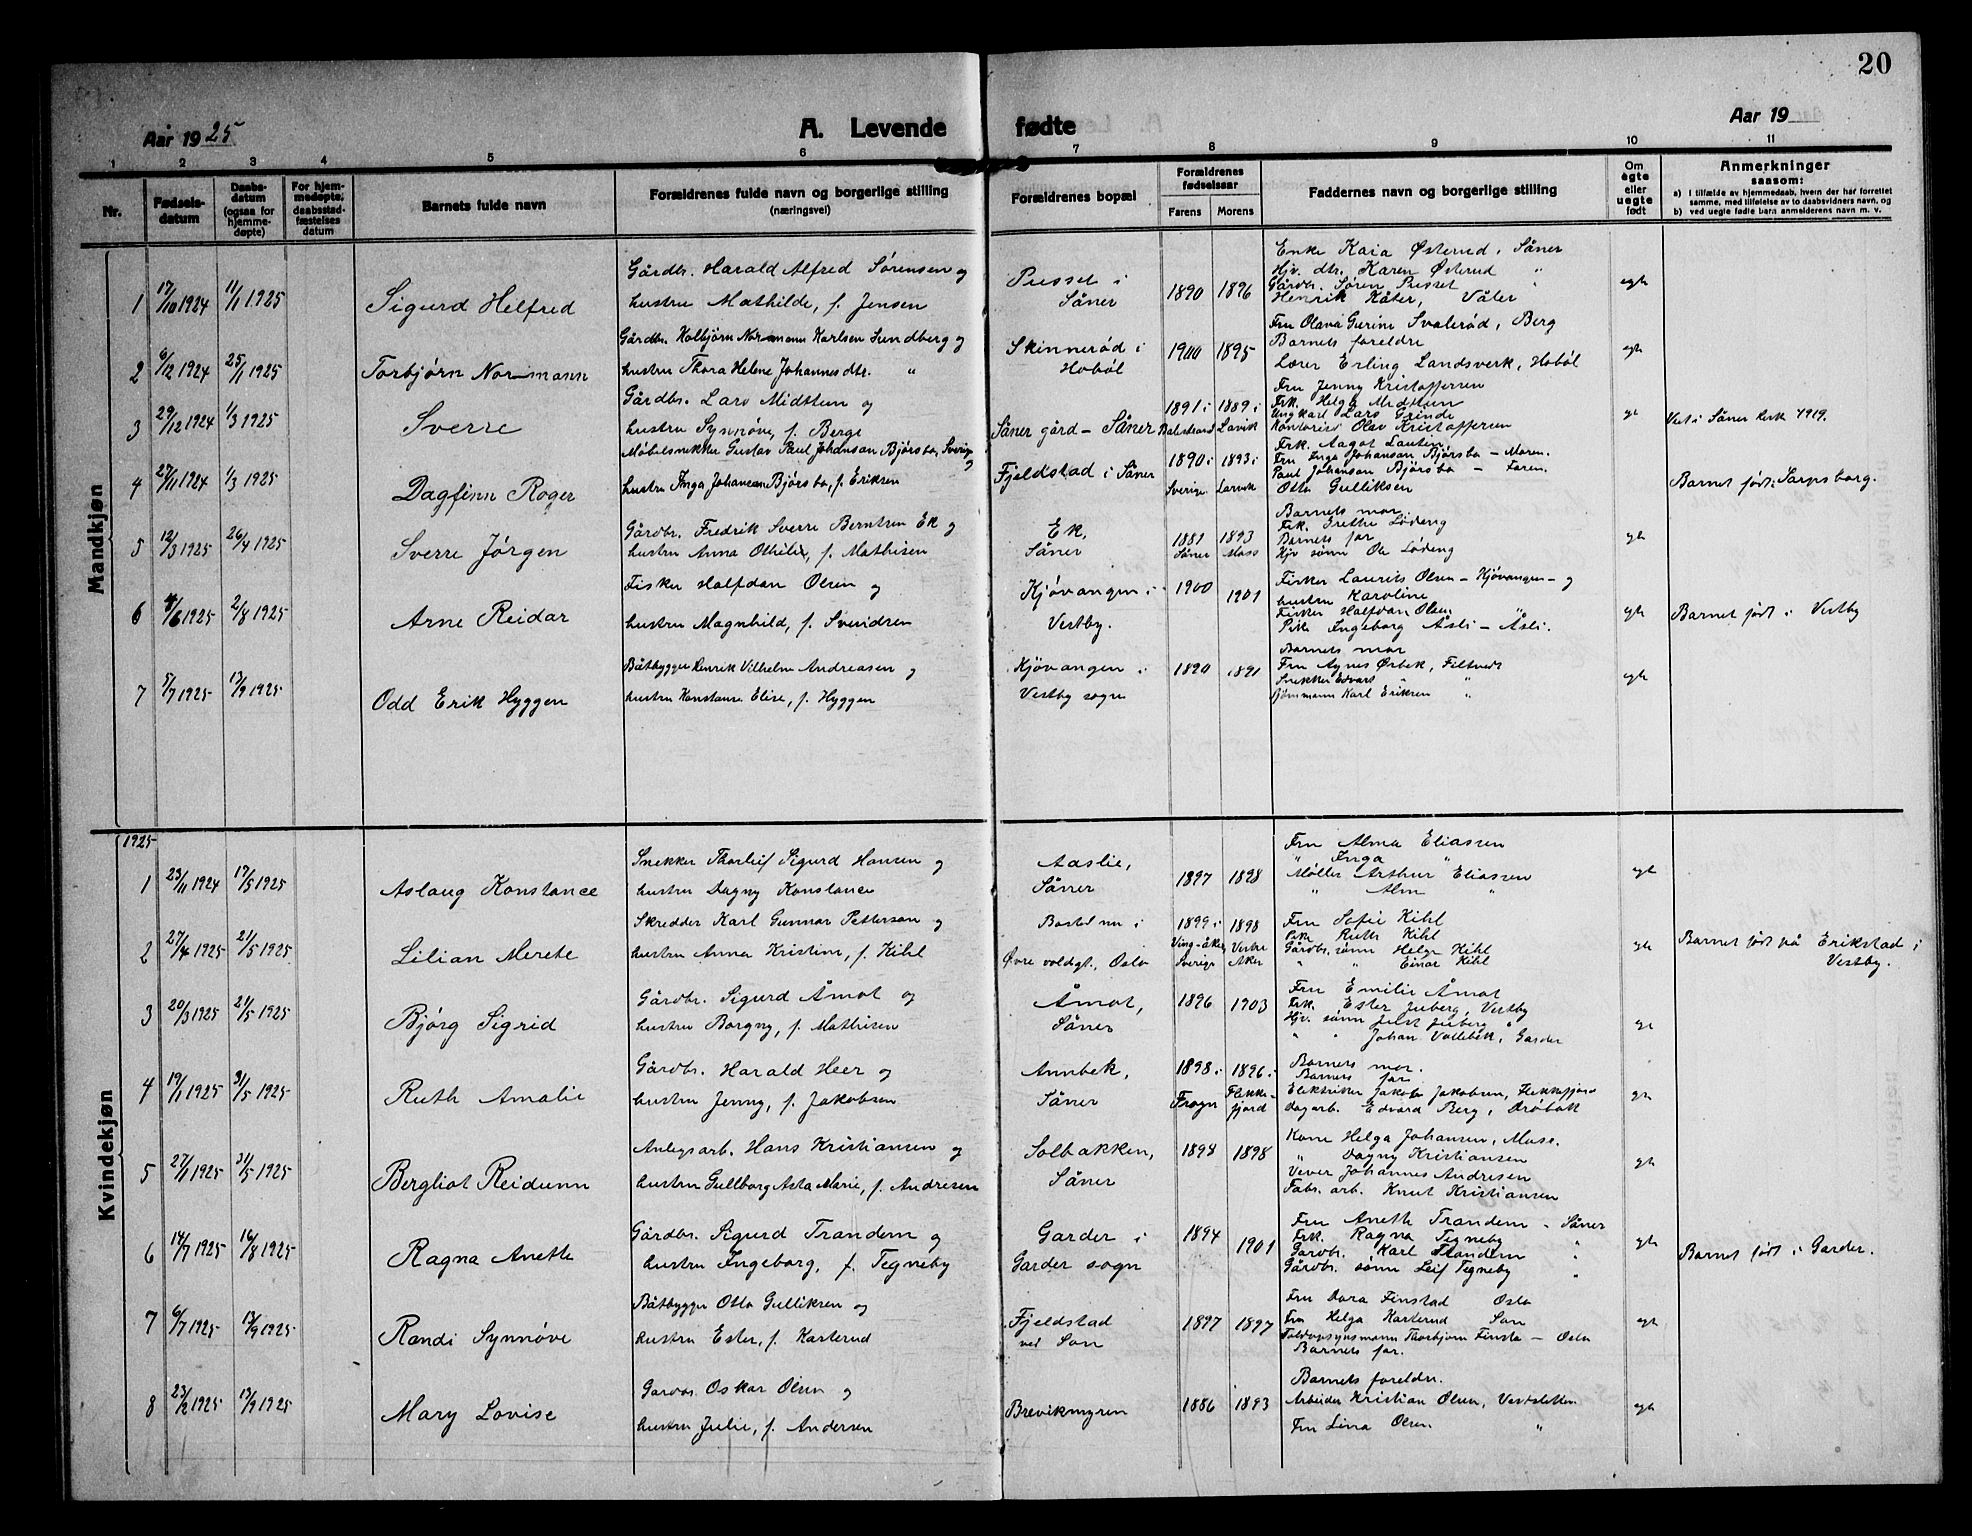 20
Aar 1925
A. Levende fødte
Aar 19
1 2 3 4 5 6 7 8 9 10 11
Nr.
Fødsels-
datum
Daabs-
datum
(ogsaa for
hjemme-
døpte)
For hjem-
medøpte,
daabsstad-
fæstelses
datum
Barnets fulde navn
Forældrenes fulde navn og borgerlige stilling
(næringsvei)
Forældrenes bopæl
Forældrenes
fødselsaar
Farens Morens
Faddernes navn og borgerlige stilling
Om
ægte
eller
uegte
født
Anmerkninger
saasom:
a) I tilfælde av hjemmedaab, hvem der har forrettet
samme, med tilføielse av to daabsvidners navn, og
b) ved uegte fødte barn anmelderens navn m. v.
Mandkjøn
1 17/10 1924 11/1 1925 Sigurd Helfred
Gårdbr. Harald Alfred Sørensen og
hustru Mathilde, f. Jensen
Pusset i
Såner
1890 1896
Enke Kaia Østerud, Såner
Hjv. dtr. Karen Østerud "
Gårdbr. Søren Pusset "
Henrik Kåter, Våler
egte
2 6/12 1924 25/1 1925 Torbjørn Normann
Gårdbr. Kolbjørn Normann Karlsen Sundberg og
hustru Thora Helene Johannesdtr. "
Skinnerød i
Hobøl
1900 1895
Fru Olava Gurine Svalerød, Berg
Barnets foreldre
Lærer Erling Landsverk, Hobøl
egte
3 29/12 1924 1/3 1925 Sverre
Gårdbr. Lars Midttun og
hustru Synnøve, f. Berge
Såner gård - Såner
1891 i 1889 i
Balestrand Lavik
Fru Jenny Kristoffersen
Frk. Helga Midttun
Ungkarl Lars Grinde
Kontorist Olav Kristoffersen
egte
Vest i Såner kirk 1919.
4 27/11 1924 1/3 1925 Dagfinn Roger
Møbelsnekker Gustav Paul Johansan Bjørsbo, Sverige
og
hustru Inga Johansan Bjørsbo, f. Eriksen
Fjeldstad i Såner
1890 i 1893 i
Sverige Larvik
Frk. Aagot Lautin
Fru Inga Johansan Bjørsbo - Moren.
Paul Johansan Bjørsbo - Faren.
Otto Gulliksen
Barnet født i Sarpsborg.
5 12/3 1925 26/4 1925 Sverre Jørgen
Gårdbr. Fredrik Sverre Berntsen Ek og
hustru Anna Othilie, f. Mathisen
Ek,
Såner
1881 1893
Såner Moss
Barnets mor
Frk. Grethe Lødeng
Barnets far
Hjv sønn Ole Lødeng
egte
6 4/6 1925 2/8 1925 Arne Reidar
Fisker Halfdan Olsen og
hustru Magnhild, f. Svendsen
Kjøvangen i
Vestby.
1900 1901
Fisker Laurits Olsen - Kjøvangen - og
hustru Karoline
Fisker Halfdan Olsen "
Pike Ingeborg Åsli - Åsli.
egte
Barnet født i Vestby
7 5/7 1925 13/9 1925 Odd Erik Hyggen
Båtbygger Henrik Vilhelm Andreasen og
hustru Konstanse Elise, f. Hyggen
Kjøvangen i
Vestby sogn
1890 1891
Barnets mor
Fru Agnes Ørbek, Filtvedt
Snekker Edvart " "
Sjømann Karl Eriksen "
egte
Kvindekjøn
1925
1 23/11 1924 17/5 1925 Aslaug Konstance
Snekker Thorleif Sigurd Hansen og
hustru Dagny Konstance
Aaslie,
Såner
1897 1898
Fru Alma Eliassen
" Inga "
Møller Arthur Eliassen
" Alm "
egte
2 27/4 1925 21/5 1925 Lilian Merete
Skredder Karl Gunnar Petterson og
hustru Anna Kristine, f. Kihl
Bosted nu i
Øvre voldgt., Oslo
1899 i 1898
Ving-åker Vestre
Sverige Aker
Fru Sofie Kihl
Pike Ruth Kihl
Gårdbr. sønn Helge Kihl
" " Einar Kihl
egte
Barnet født på Erikstad i
Vestby.
3 20/3 1925 21/5 1925 Bjørg Sigrid
Gårdbr. Sigurd Åmot og
hustru Borgny, f. Mathisen
Åmot,
Såner
1896 1903
Fru Emilie Åmot
Frk. Ester Juberg, Vestby
Hjv. sønn Juberg "
" " Johan Vollebek, Garder
egte
4 19/1 1925 31/5 1925 Ruth Amalie
Gårdbr. Harald Heer og
hustru Jenny, f. Jakobsen
Annbek,
Såner
1898 i 1896 i
Frogn Flekke-
fjord
Barnets mor.
Barnets far
Elektriker Jakob Jakobsen, Flekkefjord
dagarb. Edvard Berg, Drøbak
egte
5 27/1 1925 31/5 1925 Bergliot Reidunn
Anlegsarb. Hans Kristiansen og
hustru Gullborg Asta Marie, f. Andresen
Solbakken,
Såner
1894 1898
Kone Helga Johansen, Moss.
" Dagny Kristiansen
Vever Johannes Andresen
Fabr. arb. Knut Kristiansen
egte
6 14/7 1925 16/8 1925 Ragna Anethe
Gårdbr. Sigurd Trandem og
hustru Ingeborg, f. Tegneby
Garder i
Garder sogn
1894 1901
Fru Anethe Trandem - Såner
Frk. Ragna Tegneby
Gårdbr. Karl Trandem "
Gårdbr. sønn Leif Tegneby "
egte
Barnet født i Garder.
7 6/7 1925 13/9 1925 Randi Synnøve
Båtbygger Otto Gulliksen og
hustru Ester, f. Karterud
Fjeldstad
ved Son
1897 1897
Fru Dora Finstad Oslo
Fru Helga Karterud Son
Toldopsynsmann Thorbjørn Finsta - Oslo
Barnets far.
egte
8 23/2 1925 13/9 1925 Mary Lovise
Gårdbr. Oskar Olsen og
hustru Julie, f. Andersen
Brevikmyren
1886 1893
Barnets foreldre.
Arbeider Kristian Olsen, Vestsletten
Fru Lina Olsen. "
egte